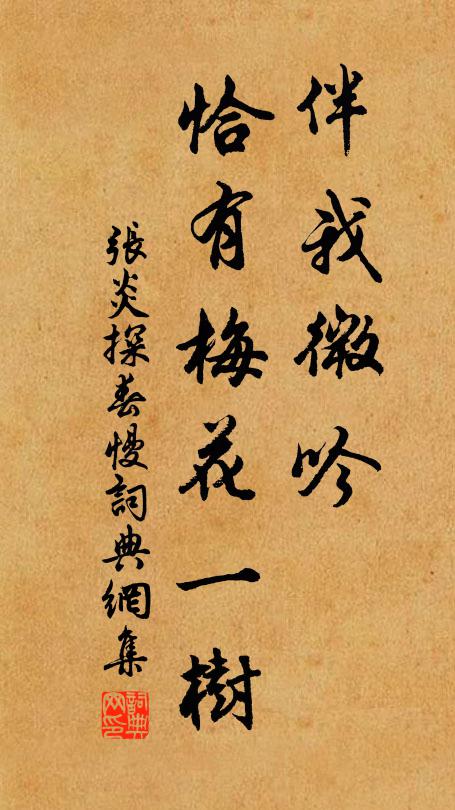 伴我微吟
恰有梅花一樹
張炎探春慢詞典網集
詞典网印